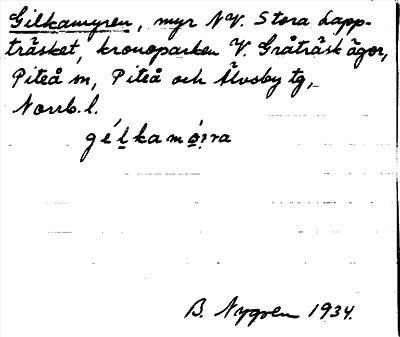 Gilkamyren, myr NV. Stora Lapp-
träsket, kronoparken V. Gråträsk äger,
Piteå sn, Piteå och Älvsby tg,
Norrb. l.
B. Nygren 1934.